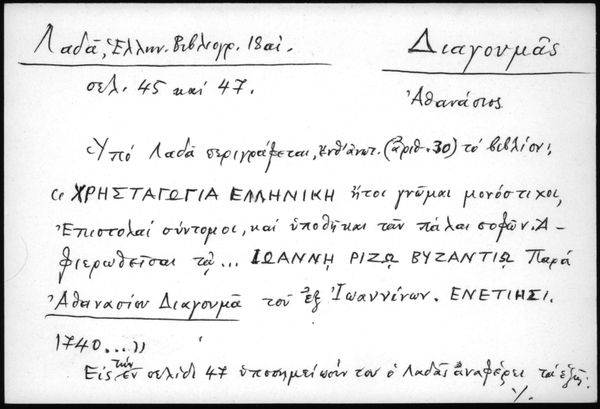 Λαδᾶ, Ἑλλην. Βιβλιογρ. 18 αἰ.
Διαγουμᾶς
σελ. 45 καί 47.
Ἀθανάσιος
Ὑπό Λαδᾶ περιγράφεται, ἔνθ' ἀνωτ. (ἀριθ. 30) τό βιβλίον:
« ΧΡΗΣΤΑΓΩΓΙΑ ΕΛΛΗΝΙΚΗ ἤτοι γνῶμαι μονόστιχοι,
Ἐπιστολαί σύντομοι, καί ὑποθῆκαι τῶν πάλαι σοφῶν. Ἀ-
φιερωθεῖσαι τῷ... ΙΩΑΝΝῌ ΡΙΖῼ ΒΥΖΑΝΤΙῼ Παρά
Ἀθανασίου Διαγουμᾶ τοῦ ἐξ Ἰωαννίνων. ΕΝΕΤΙΗΣΙ.
1740...»
Εἰς τήν ἐν σελίδι 47 ὑποσημείωσίν του ὁ Λαδᾶς ἀναφέρει τά ἑξῆς:
./.